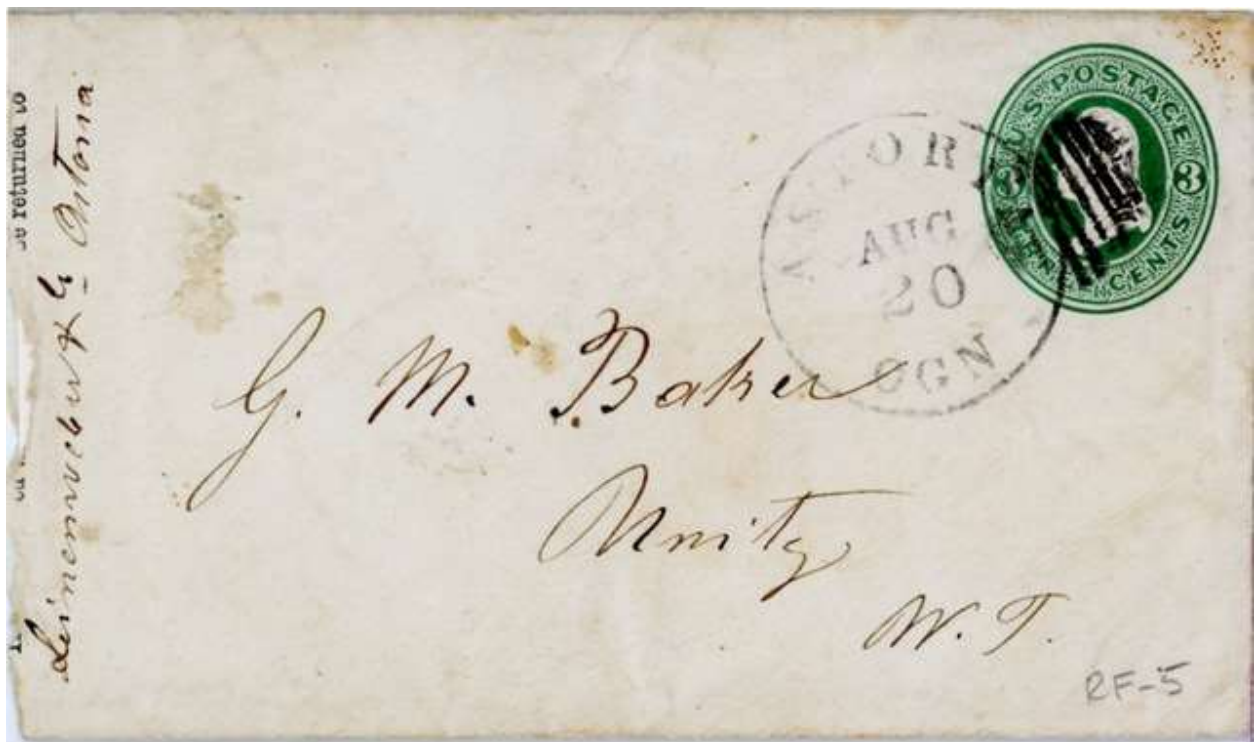 be returned to
Leinenweber & Co Astoria
U.S. POSTAGE
3 3
THREE CENTS
ASTORIA
AUG
20
OGN
G. M. Baker
Unity
W. T.
RF-5